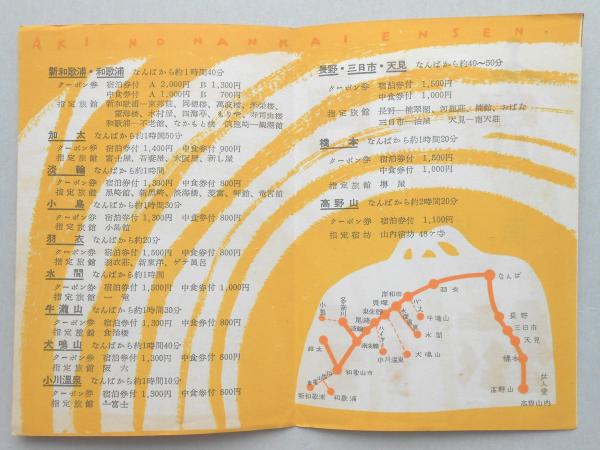 AKI NO NANKAI ENSEN.
新和歌浦・和歌浦 なんばから約1時間40分
クーポン券 宿泊券付 A 2,000円 B 1,300円
中食券付 A 1,000円 B 700円
指定旅館
加太 なんばから約1時間50分
クーポン券 宿泊券付 1,400円 中食券付 900円
指定旅館 富士屋、吾妻屋、大阪屋、新し屋
淡輪 なんばから約1時間
クーポン券 宿泊券付 1,300円 中食券付 800円
指定旅館 黒崎館、新黒崎、淡海楼、菱富、岬館、竜宮館
小島 なんばから約1時間30分
クーポン券 宿泊券付 1,300円 中食券付 800円
指定旅館 小島館
羽衣 なんばから約20分
クーポン券 宿泊券付 1,500円 中食券付 800円
指定旅館 羽衣荘、新東洋、ゲタ風呂
水間 なんばから約1時間
クーポン券 宿泊券付 1,300円 中食券付 1,000円
指定旅館 一竜
牛滝山 なんばから約1時間30分
クーポン券 宿泊券付 1,300円 中食券付 800円
指定旅館
犬鳴山 なんばから約1時間40分
クーポン券 宿泊券付 1,300円 中食券付 800円
指定旅館
小川温泉 なんばから約1時間10分
クーポン券 宿泊券付 1,300円 中食券付 800円
指定旅館 一富士
長野・三日市・天見 なんばから約40〜50分
クーポン券 宿泊券付 1,500円
中食券付 1,000円
指定旅館 長野一
三日市一油屋 天見一南天荘
橋本 なんばから約1時間20分
クーポン券 宿泊券付 1,500円
中食券付 1,000円
指定旅館
高野山 なんばから約2時間20分
クーポン券 宿泊券付 1,100円
指定宿坊 山内宿坊 48ヶ寺
なんば
羽衣
岸和田
貝塚
牛滝山
水間
犬鳴山
小川温泉
淡輪
多奈川
小島
加太
和歌山市
新和歌浦
和歌浦
長野
三日市
天見
橋本
高野山
女人堂
高野山内